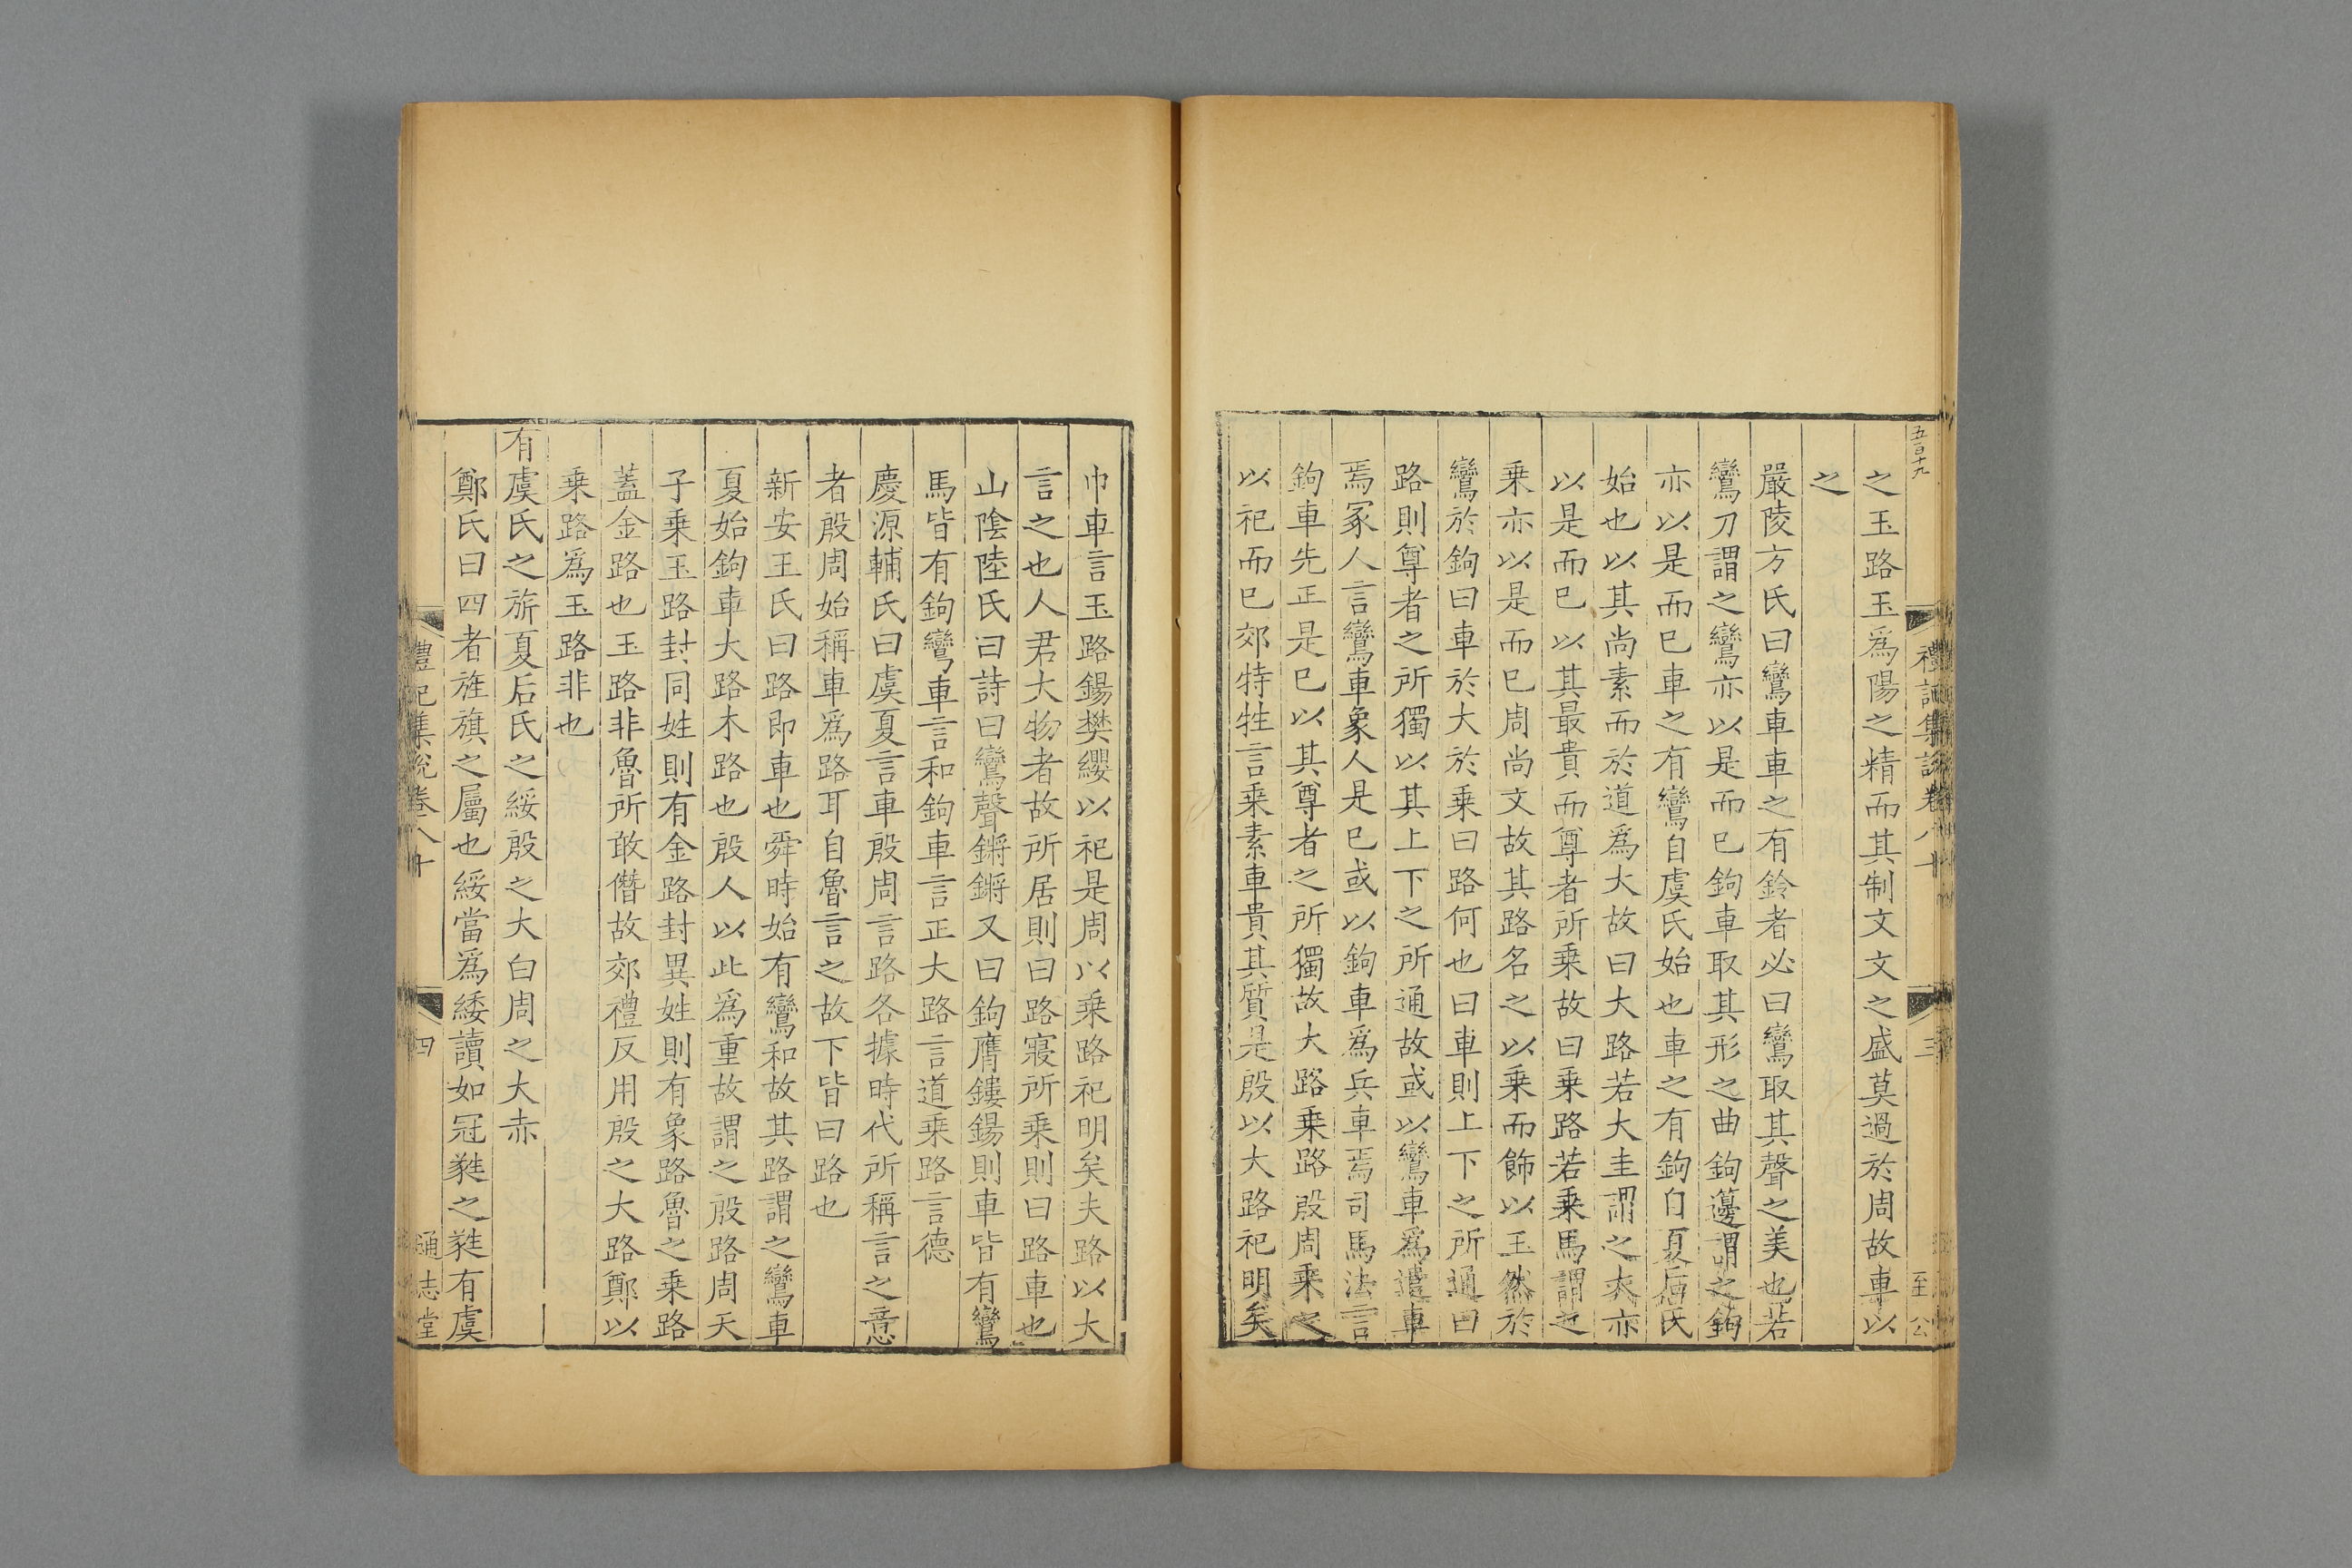 五百十九
禮記集說卷八十
三
至公
之玉路玉爲陽之精而其制文文之盛莫過於周故車以
之
嚴陵方氏曰鸞車車之有鈴者必曰鸞取其聲之美也若
鸞刀謂之鸞亦以是而已鉤車取其形之曲鉤邊謂之鉤
亦以是而已車之有鸞自虞氏始也車之有鉤自夏后氏
始也以其尚素而於道爲大故曰大路若大圭謂之大亦
以是而已以其最貴而尊者所乗故曰乗路若乗馬謂之
乗亦以是而已周尚文故其路名之以乗而飾以玉然於
鸞於鉤曰車於大於乗曰路何也曰車則上下之所通曰
路則尊者之所獨以其上下之所通故或以鸞車爲遣車
焉冢人言鸞車象人是已或以鉤車爲兵車焉司馬法言
鉤車先正是已以其尊者之所獨故大路乗路殷周乗之
以祀而已郊特牲言乗素車貴其質是殷以大路祀明矣
巾車言玉路鍚樊纓以祀是周以乗路祀明矣夫路以大
言之也人君大物者故所居則曰路寢所乗則曰路車也
山隂陸氏曰詩曰鸞聲鏘鏘又曰鉤膺鏤鍚則車皆有鸞
馬皆有鉤鸞車言和鉤車言正大路言道乗路言德
慶源輔氏曰虞夏言車殷周言路各據時代所稱言之意
者殷周始稱車爲路耳自魯言之故下皆曰路也
新安王氏曰路即車也舜時始有鸞和故其路謂之鸞車
夏始鉤車大路木路也殷人以此爲重故謂之殷路周天
子乗玉路封同姓則有金路封異姓則有象路魯之乗路
蓋金路也玉路非魯所敢僭故郊禮反用殷之大路鄭以
乗路爲玉路非也
有虞氏之旂夏后氏之綏殷之大白周之大赤
鄭氏曰四者旌旗之屬也綏當爲緌讀如冠蕤之蕤有虞
禮記集說卷八十
四
通志堂